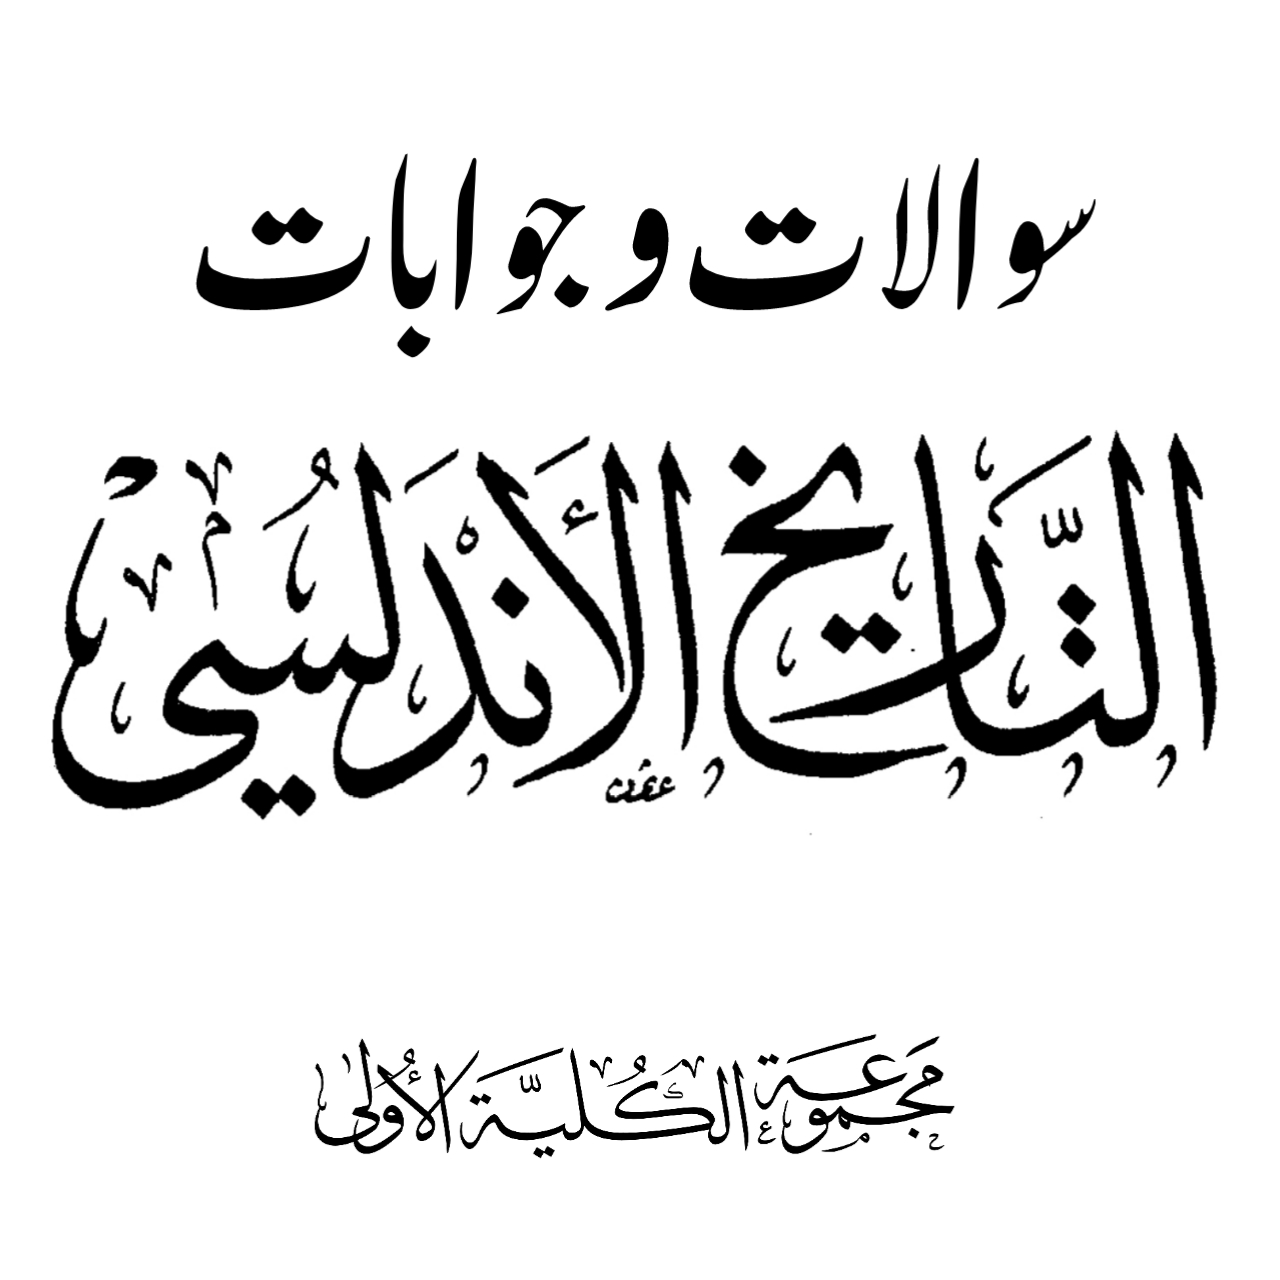 سوالات و جوابات
التَّارِيخ الأَنْدَلُسِي
مَجموعَة الكُليَّة الأُولى